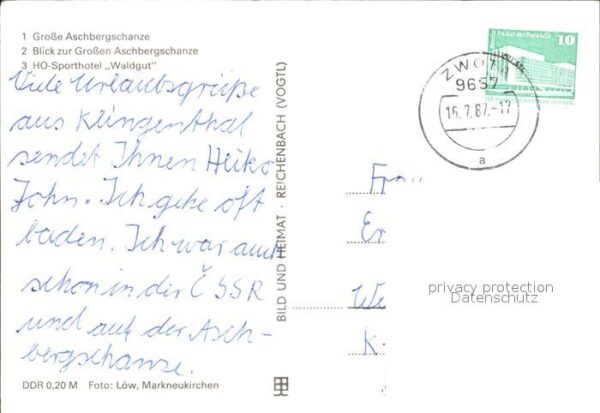 1 Große Aschbergschanze
2 Blick zur Großen Aschbergschanze
3 HO-Sporthotel „Waldgut"
Viele Urlaubsgrüße
aus Klingenthal
sendet Ihnen Heiko
John. Ich gehe oft
baden. Ich war auch
schon in der ČSSR
und auf der Asch-
bergschanze.
DDR 0,20 M Foto: Löw, Markneukirchen
BILD UND HEIMAT · REICHENBACH (VOGTL)
10
Palast der Republik
ZWOTA
9657
15.7.87.-17
a
Er
We
K
privacy protection
Datenschutz